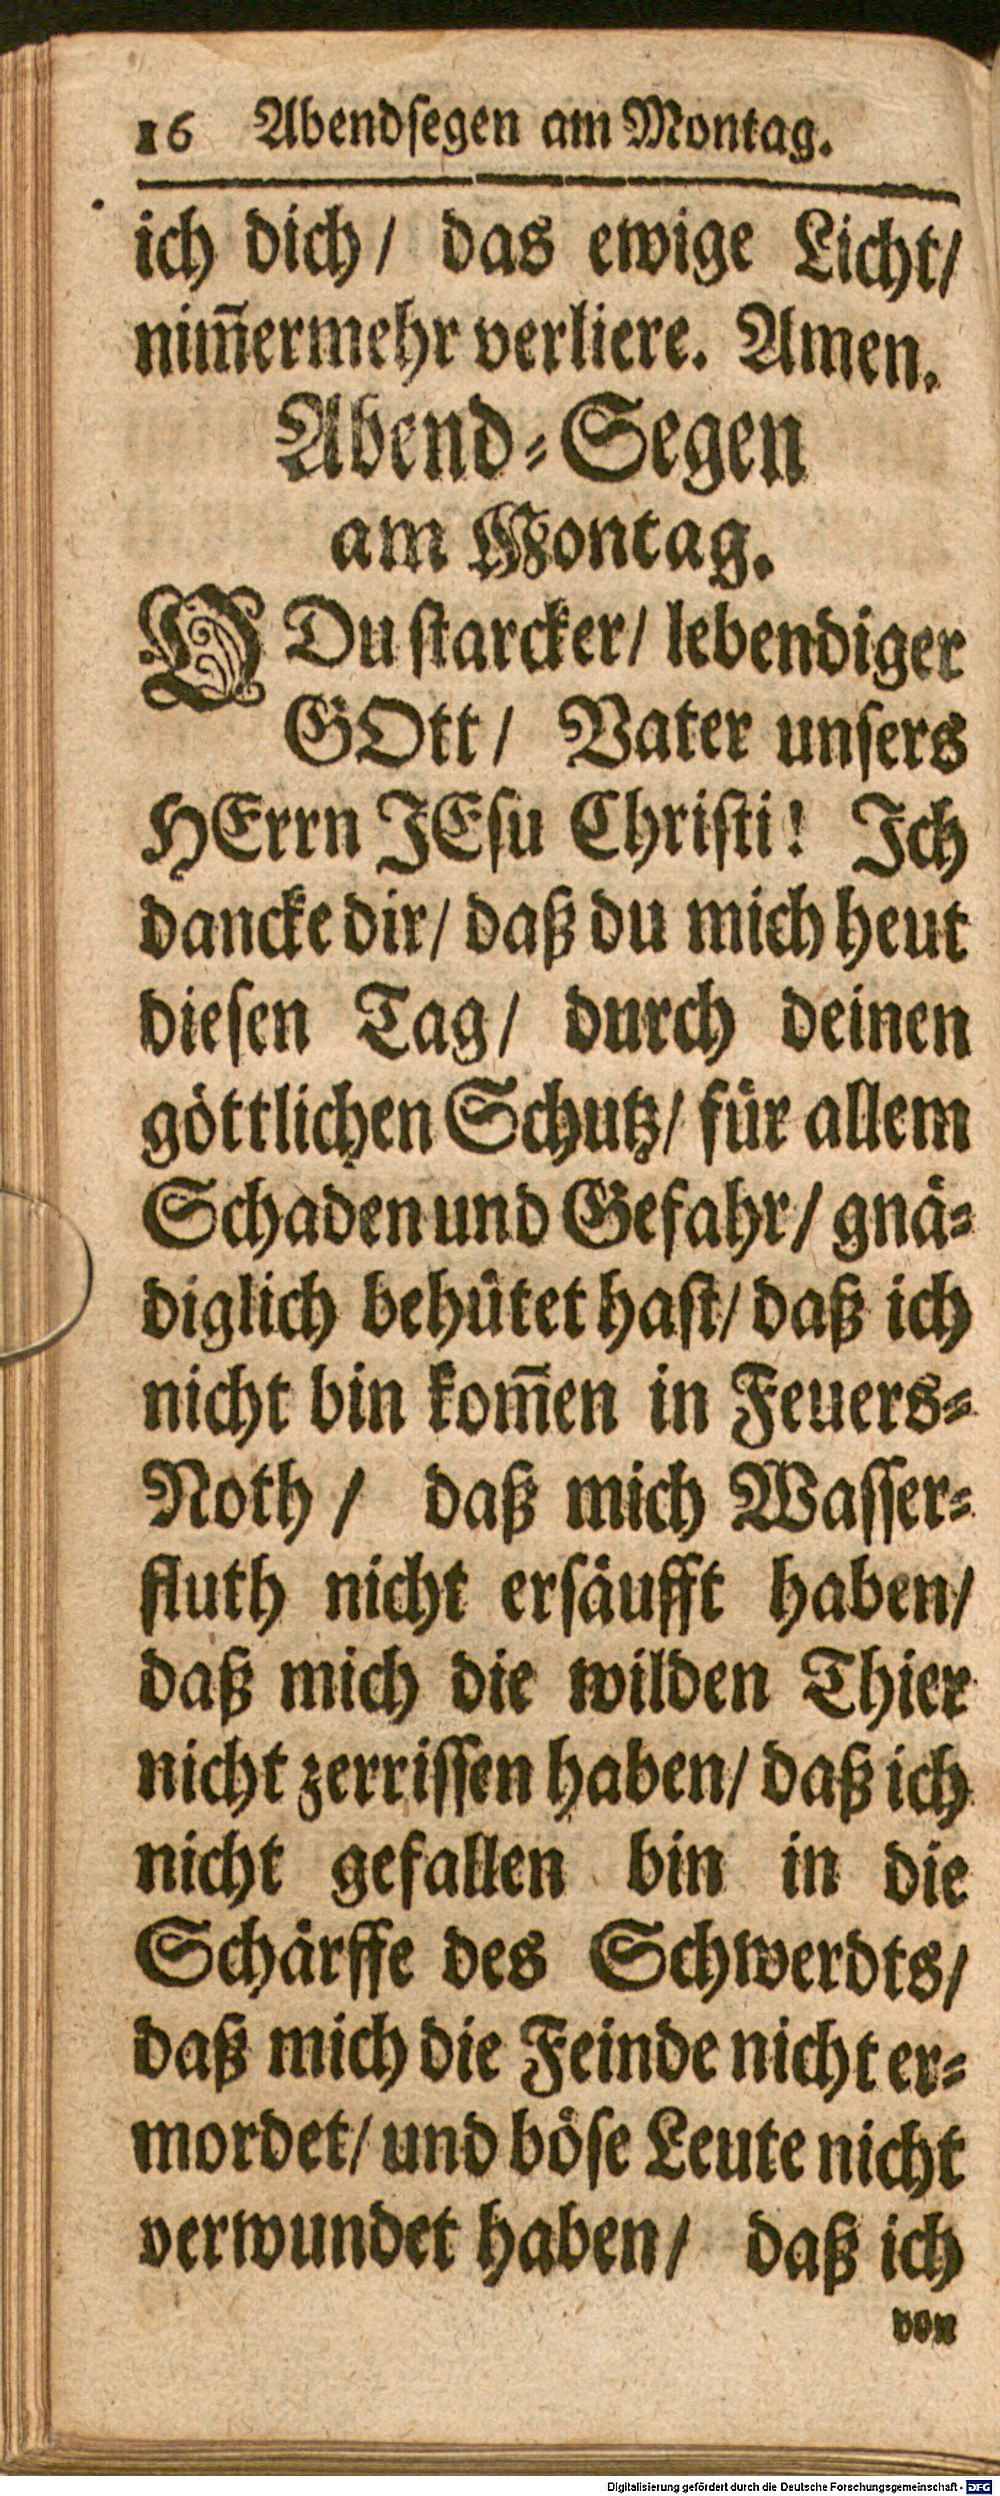 16 Abendsegen am Montag.
ich dich/ das ewige Licht/
nim̄ermehr verliere. Amen.
Abend-Segen
am Montag.
O Du starcker/ lebendiger
GOtt/ Vater unsers
HErrn JEsu Christi! Jch
dancke dir/ daß du mich heut
diesen Tag/ durch deinen
göttlichen Schutz/ für allem
Schaden und Gefahr/ gnä-
diglich behütet hast/ daß ich
nicht bin kom̄en in Feuers-
Noth/ daß mich Wasser-
fluth nicht ersäufft haben/
daß mich die wilden Thier
nicht zerrissen haben/ daß ich
nicht gefallen bin in die
Schärffe des Schwerdts/
daß mich die Feinde nicht er-
mordet/ und böse Leute nicht
verwundet haben/ daß ich
von
Digitalisierung gefördert durch die Deutsche Forschungsgemeinschaft - DFG